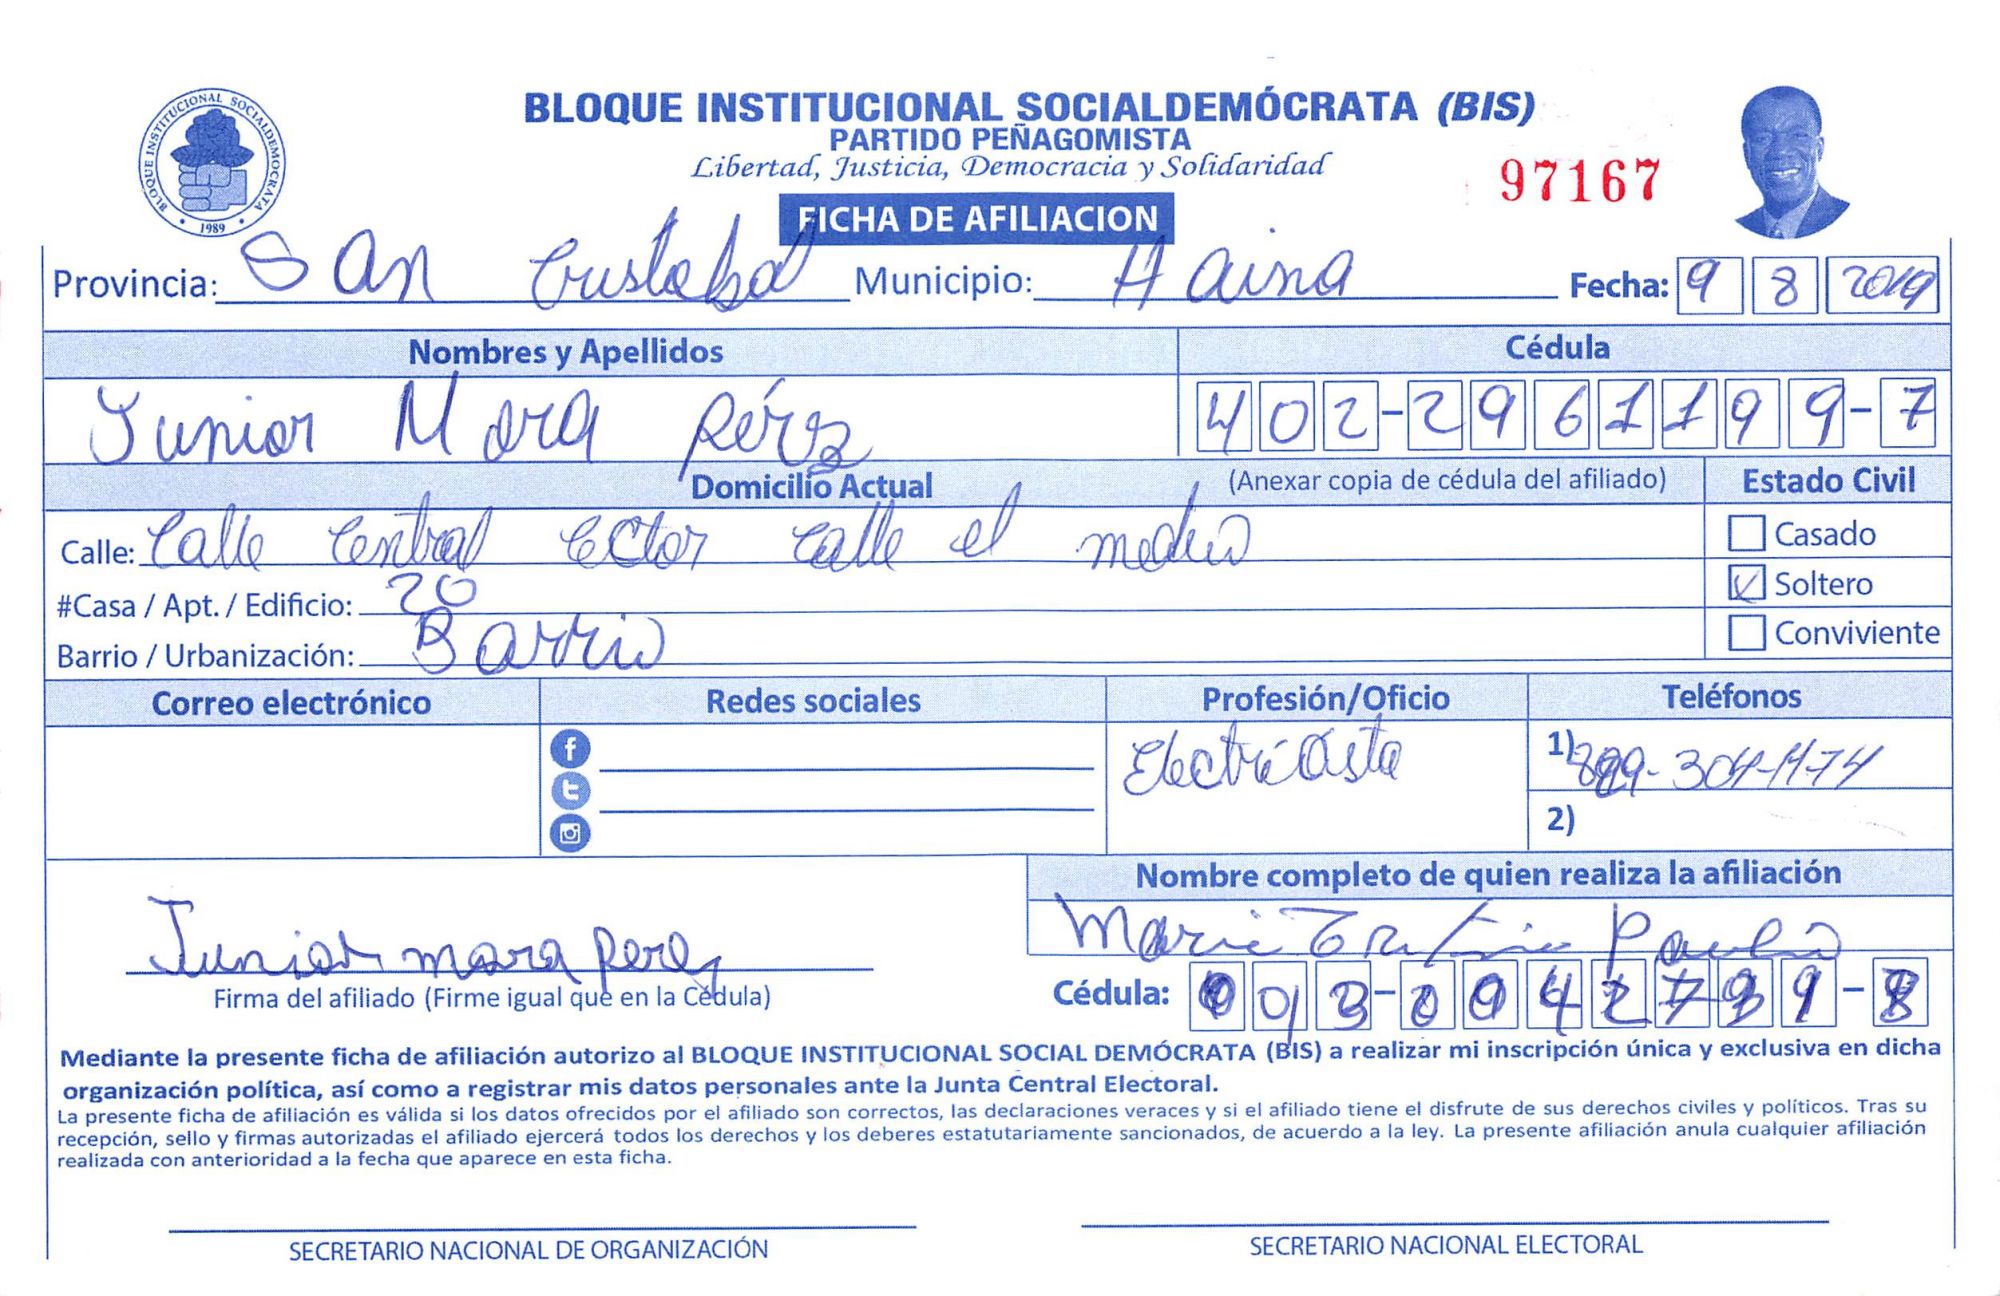 BLOQUE INSTITUCIONAL SOCIALDEMOCRATA
1989
BLOQUE INSTITUCIONAL SOCIALDEMÓCRATA (BIS)
PARTIDO PEÑAGOMISTA
Libertad, Justicia, Democracia y Solidaridad
97167
FICHA DE AFILIACION
Provincia: San Cristobal Municipio: Haina Fecha: 9 8 2019
Nombres y Apellidos Cédula
Junior Mora Pérez 402-2961199-7
Domicilio Actual (Anexar copia de cédula del afiliado) Estado Civil
Calle: Calle Central Ector Calle el medio Casado
#Casa / Apt. / Edificio: 20 Soltero
Barrio / Urbanización: Barrio Conviviente
Correo electrónico Redes sociales Profesión/Oficio Teléfonos
Electricista 1) 829-304-1174
2)
Nombre completo de quien realiza la afiliación
Junior mora perez Paulino
Firma del afiliado (Firme igual que en la Cédula) Cédula:
Mediante la presente ficha de afiliación autorizo al BLOQUE INSTITUCIONAL SOCIAL DEMÓCRATA (BIS) a realizar mi inscripción única y exclusiva en dicha
organización política, así como a registrar mis datos personales ante la Junta Central Electoral.
La presente ficha de afiliación es válida si los datos ofrecidos por el afiliado son correctos, las declaraciones veraces y si el afiliado tiene el disfrute de sus derechos civiles y políticos. Tras su
recepción, sello y firmas autorizadas el afiliado ejercerá todos los derechos y los deberes estatutariamente sancionados, de acuerdo a la ley. La presente afiliación anula cualquier afiliación
realizada con anterioridad a la fecha que aparece en esta ficha.
SECRETARIO NACIONAL DE ORGANIZACIÓN SECRETARIO NACIONAL ELECTORAL